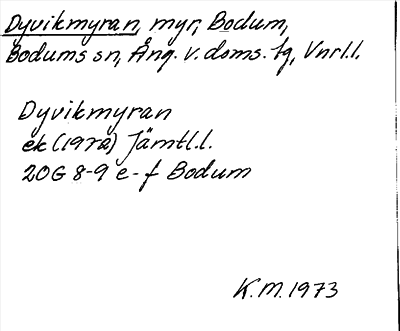 Dyvikmyran, myr, Bodum,
Bodums sn, Ång. v. doms. tg, Vnrl.l.
Dyvikmyran
ek (1972) Jämtl.l.
20G 8-9 e-f Bodum
K.M. 1973